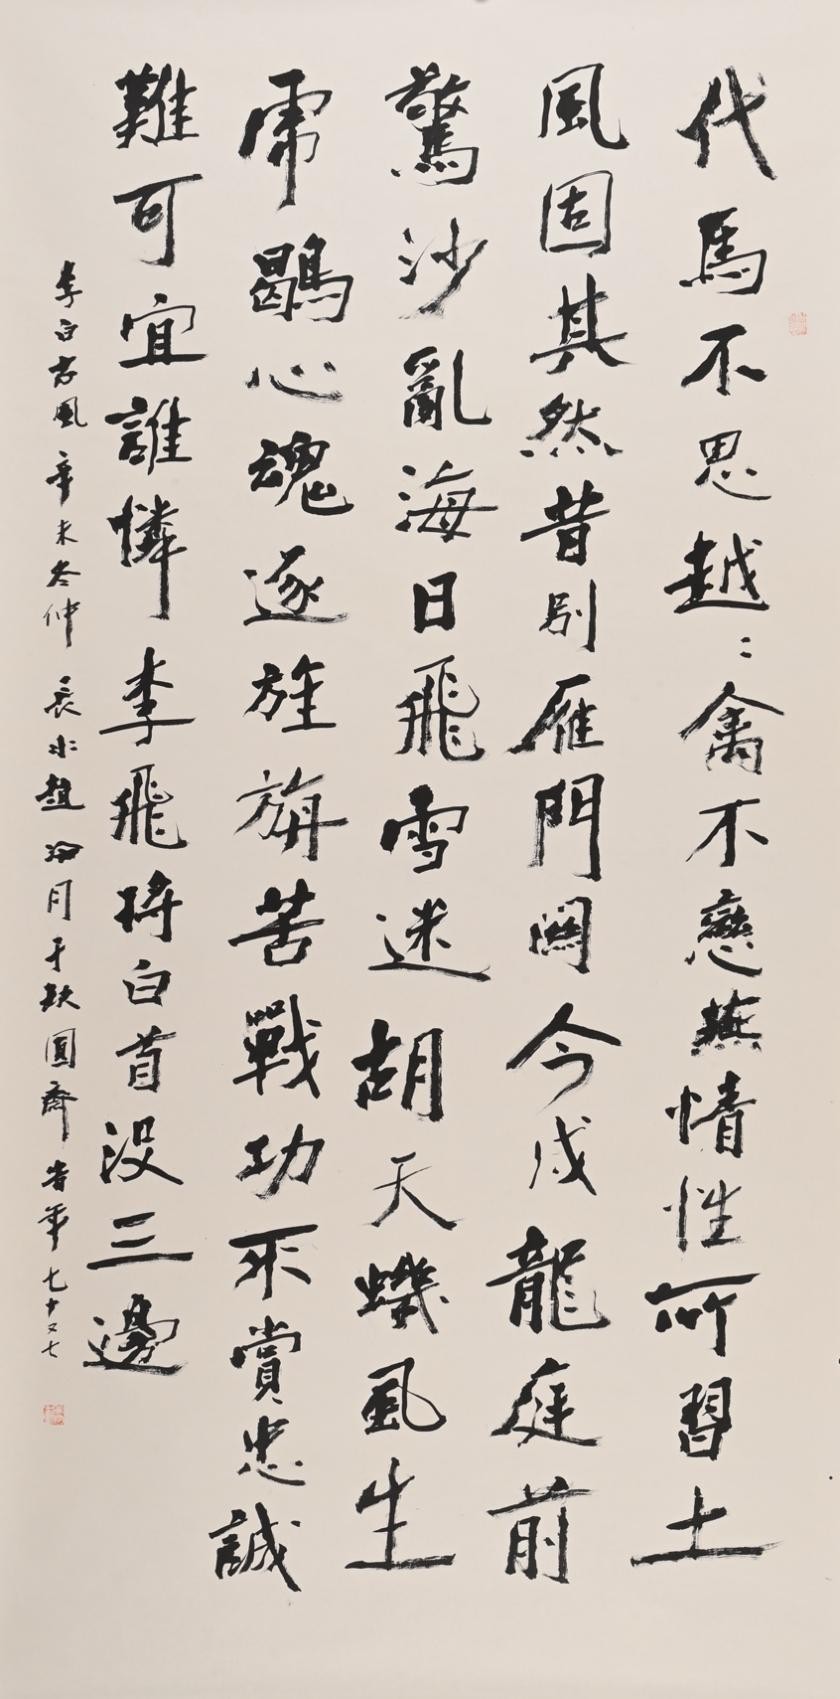 代馬不思越〻禽不戀燕情性所習土
風固其然昔別雁門關今戍龍庭前
驚沙亂海日飛雪迷胡天蟣虱生
虎鶡心魂逐旌旃苦戰功不賞忠誠
難可宣誰憐李飛將白首沒三邊
李白古風 辛未冬仲 長水趙冷月于缺圓齋 旹年七十又七